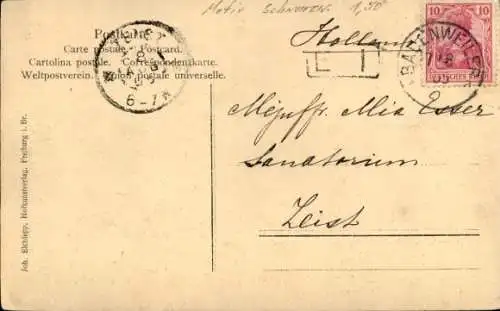 Motiv Schnitzen 1,50
Postkarte
Carte postale. Postcard.
Cartolina postale. Correspondentkarte.
Weltpostverein. Union postale universelle.
Holland
10 10
DEUTSCHES REICH
BADENWEILER
6-7
Mejuffr. Mia Esser
Sanatorium
Zeist
Joh. Elchlepp, Hofkunstverlag, Freiburg i. Br.